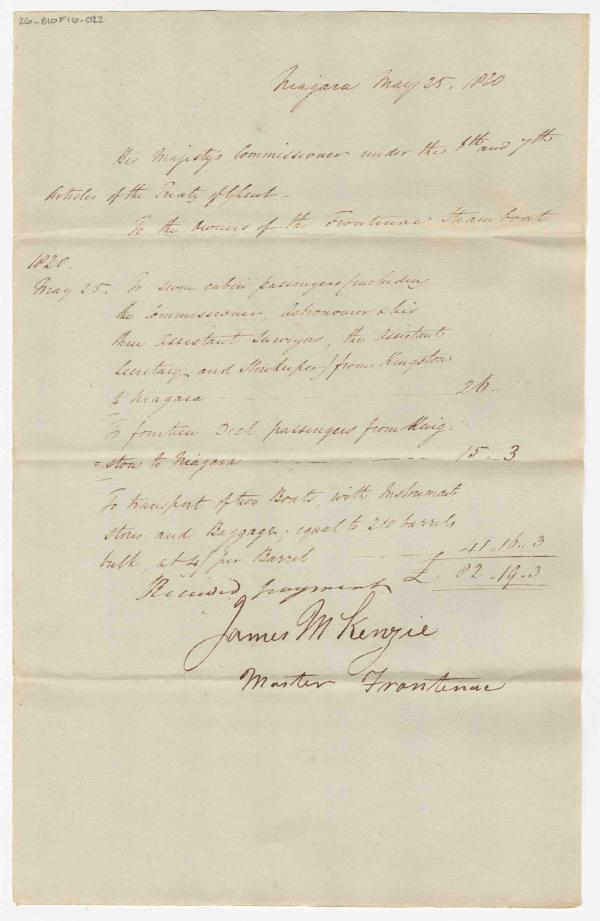 26-B10F16-022
Niagara May 25. 1820
His Majesty's Commissioner under the 6th and 7th
Articles of the Treaty of Ghent-
To the Owners of the Frontenac Steam boat
1820.
May 25. To seven cabin passengers (including
the Commissioner, Astronomer & his
three Assistant Surveyors, the Assistant
Secretary and Storekeeper) from Kingston
to Niagara - - - 26..
To fourteen Deck passengers from King=
=ston to Niagara - - - 15..3
To transport of two Boats, with Instruments
stores and Baggage; equal to 210 barrels
bulk, at 4/ per Barrel - 41..16..3
Received payment £ 82..19..3
James McKenzie
Master Frontenac